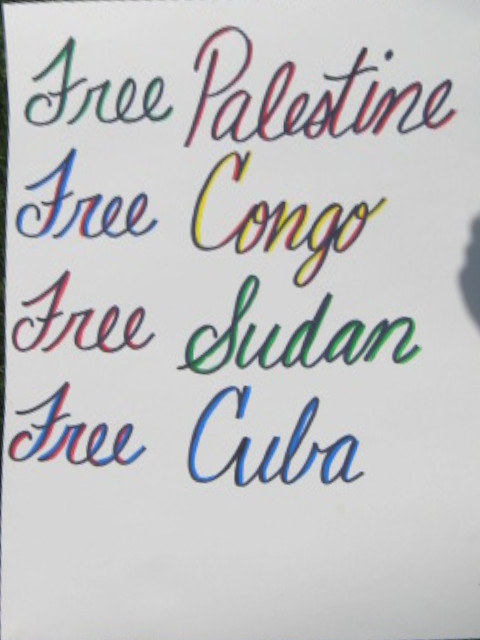 Free Palestine
Free Congo
Free Sudan
Free Cuba